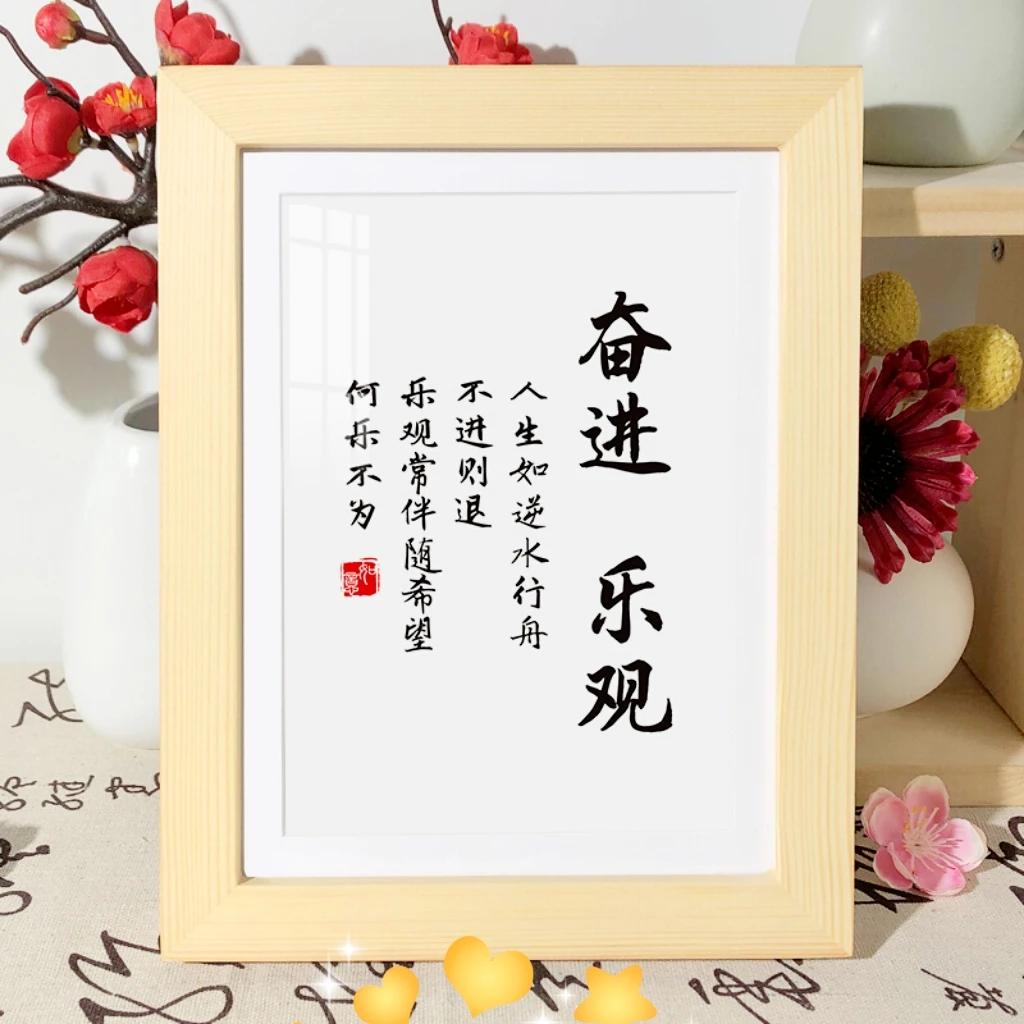 奋进 乐观
人生如逆水行舟
不进则退
乐观常伴随希望
何乐不为
如意